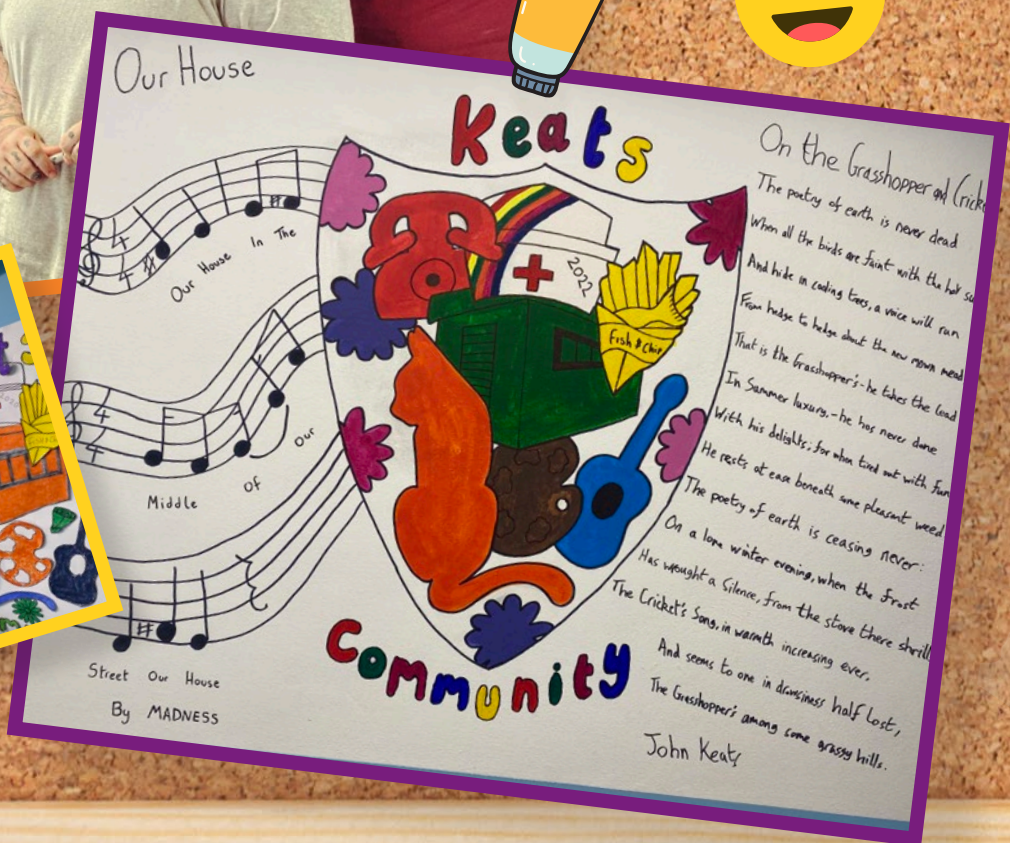 Our House
Our House In The
Middle Of Our
Street Our House
By MADNESS
Keats
2022
Fish & Chip
Community
On the Grasshopper and Cricke
The poetry of earth is never dead
When all the birds are faint with the hot su
And hide in cooling trees, a voice will run
From hedge to hedge about the new mown mead
That is the Grasshopper's - he takes the lead
In Summer luxury, - he has never done
With his delights; for when tired out with fun
He rests at ease beneath some pleasant weed
The poetry of earth is ceasing never:
On a lone winter evening, when the frost
Has wrought a Silence, from the stove there shrill
The Cricket's Song, in warmth increasing ever,
And seems to one in drowsiness half lost,
The Grasshopper's among some grassy hills.
John Keats